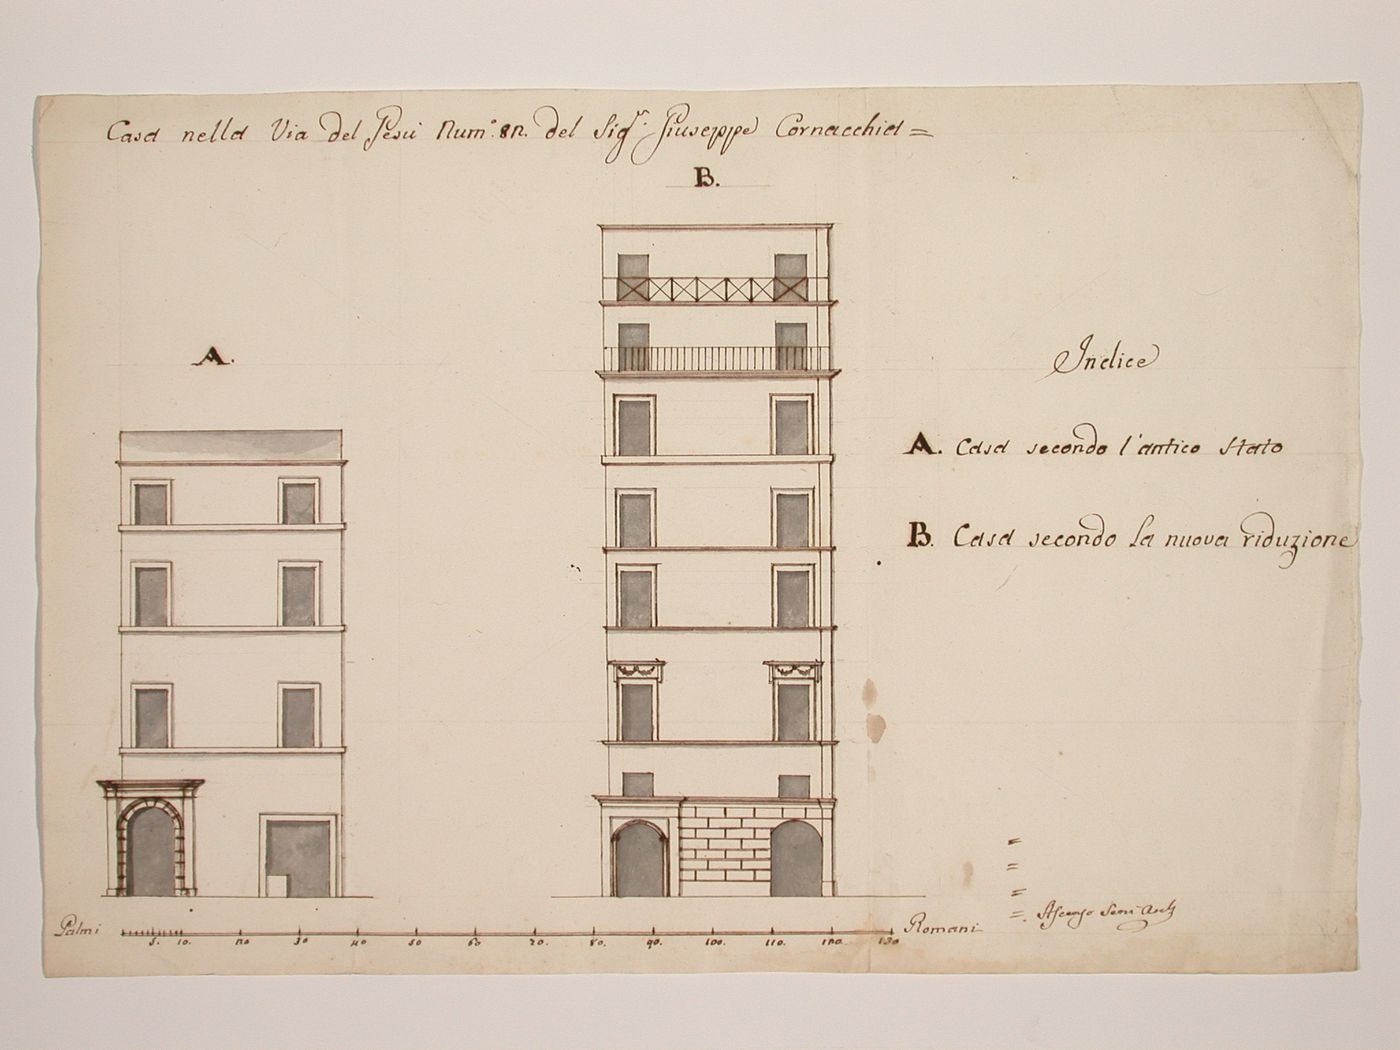 Casa nella Via del Gesù Num.° 82. del Sig.r Giuseppe Cornacchia =
B.
A.
Indice
A. Casa secondo l'antico stato
B. Casa secondo la nuova riduzione
Palmi 5. 10. 20 30 40 50 60 70. 80. 90. 100. 110. 120. 130 Romani